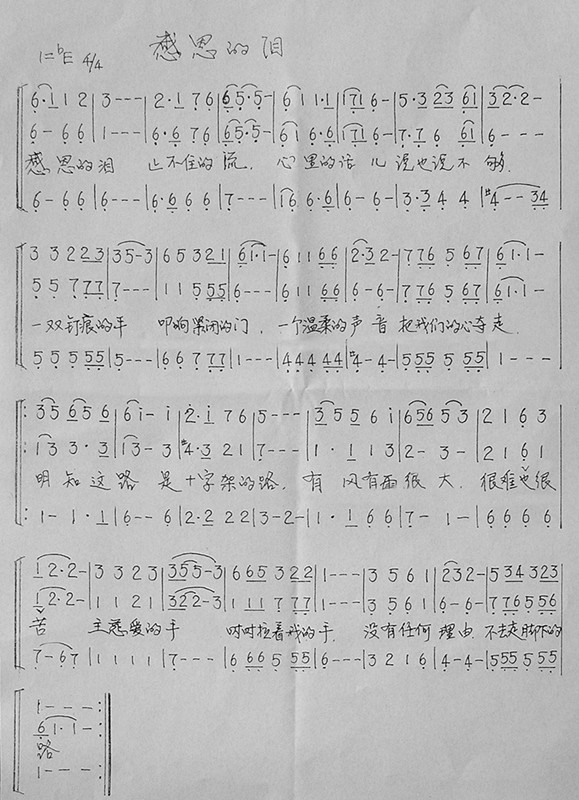 感恩的泪
1=ᵇE 4/4
6·1 1 2 | 3 - - - | 2·1 7 6 | 6 5·5· - | 6 1 1 1·1 | 1 7 1 6 - | 5·3 2 3 6 1 | 3 2·2· -
6 - 6 6 | 1 - - - | 6·6 7 6 | 6 5·5· - | 6 1 6·6 | 1 7 1 6 - | 7·7 6 6 1 | 6 - - -
感恩的泪 止不住的流, 心里的话儿说也说不够.
6 - 6 6 | 6 - - - | 6·6 6 6 | 7 - - - | 1 6 6·6 | 6 - 6 - | 3·3 4 4 | #4 - - 3 4
3 3 2 2 2 3 | 3 5 - 3 | 6 5 3 2 1 | 6 1·1 - | 6 1 1 6 6 | 2·3 2 - | 7 7 6 5 6 7 | 6 1·1 -
5 5 7 7 7 | 7 - - - | 1 1 5 5 5 | 6 - - - | 6 1 1 6 6 | 6 - 6 - | 7 7 6 5 6 7 | 6 1·1 -
一双钉痕的手 叩响紧闭的门, 一个温柔的声音把我们的心夺走.
5 5 5 5 5 | 5 - - - | 6 6 7 7 7 | 1 - - - | 4 4 4 4 4 | #4 - 4 - | 5 5 5 5 5 5 | 1 - - -
3 5 6 5 6 | 6 i - i | 2·i 7 6 | 5 - - - | 3 5 5 6 i | 6 5 6 5 3 | 2 1 6 3
1 3 3·3 | 1 3 - 3 | #4·3 2 1 | 7 - - - | 1·1 1 3 | 2 - 3 - | 2 1 6 1
明知这路是十字架的路, 有风有雨很大, 很难也很
1 - 1·1 | 6 - - 6 | 2·2 2 2 | 3 - 2 - | 1·1 6 6 | 7 - 1 - | 6 6 6 6
1 2·2 - | 3 3 2 3 | 3 5 5 - 3 | 6 6 5 3 2 2 | 1 - - - | 3 5 6 1 | 2 3 2 - | 5 3 4 3 2 3
1 2·2 - | 1 1 2 1 | 3 2 2 - 3 | 1 1 7 7 7 | 1 - - - | 3 5 6 1 | 6 - 6 - | 7 7 6 5 5 6
苦 主慈爱的手 时时拉着我的手. 没有任何理由 不去走脚下的
7 - 6 7 | 1 1 1 1 | 7 - - - | 6 6 6 5 5 5 | 6 - - - | 3 2 1 6 | 4 - 4 - | 5 5 5 5 5 5
1 - - - :
6 1·1 - :
路
1 - - - :